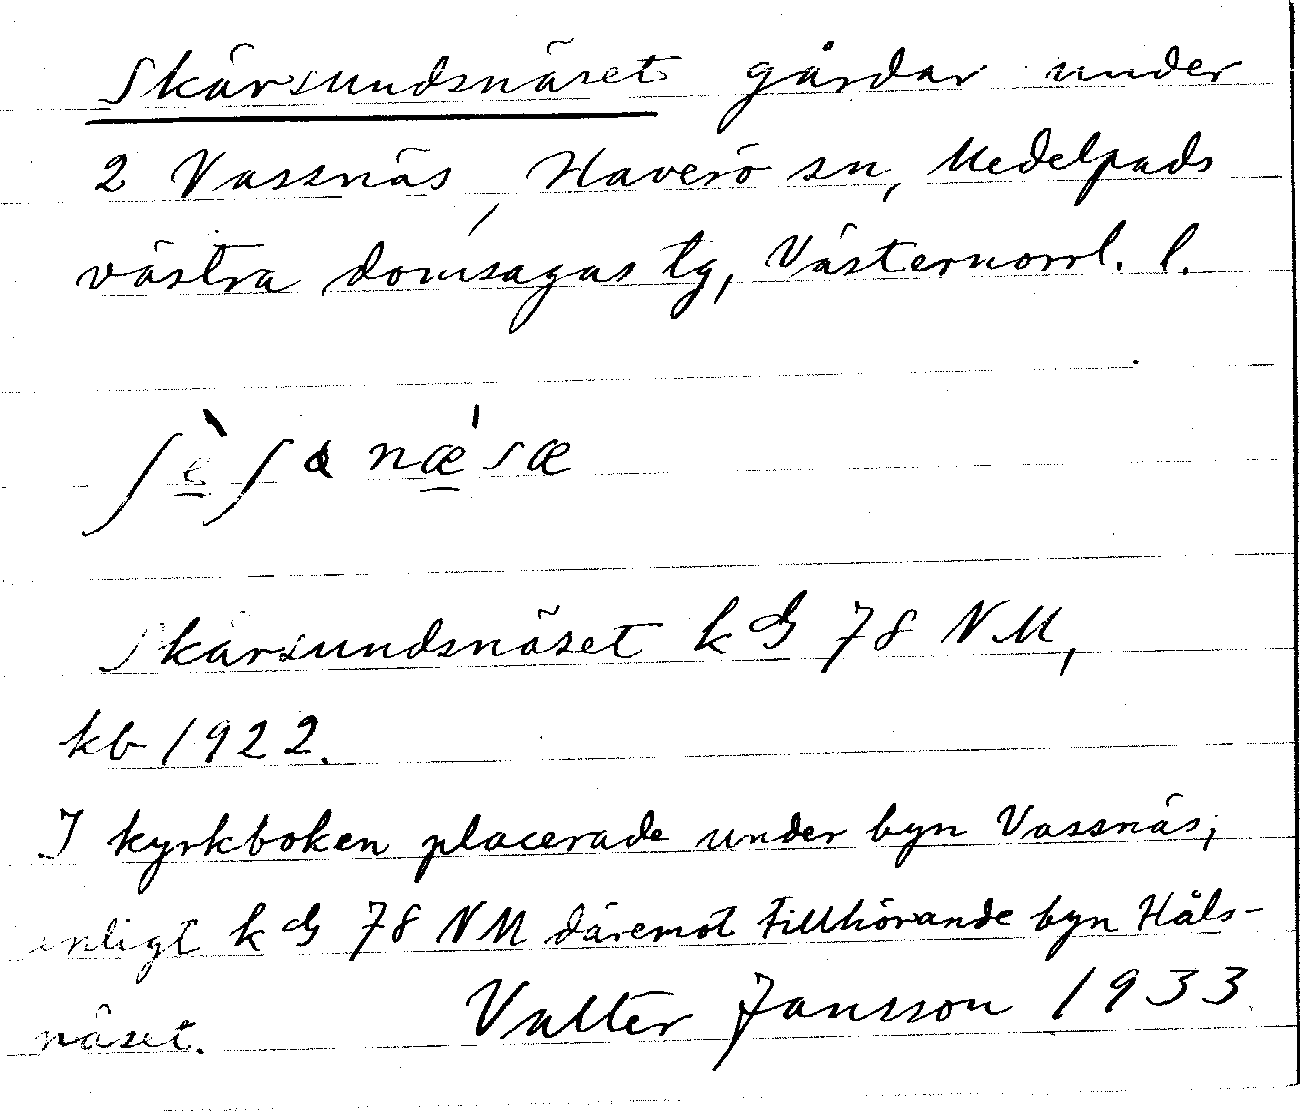 Skärsundsnäset gårdar under
2 Vassnäs, Haverö sn, Medelpads
västra domsagas tg, Västernorrl. l.
ʃèʃa næ'sæ
Skärsundsnäset k G 78 NM,
kb 1922.
I kyrkboken placerade under byn Vassnäs;
enligt k G 78 NM däremot tillhörande byn Häls-
näset. Valter Jansson 1933.